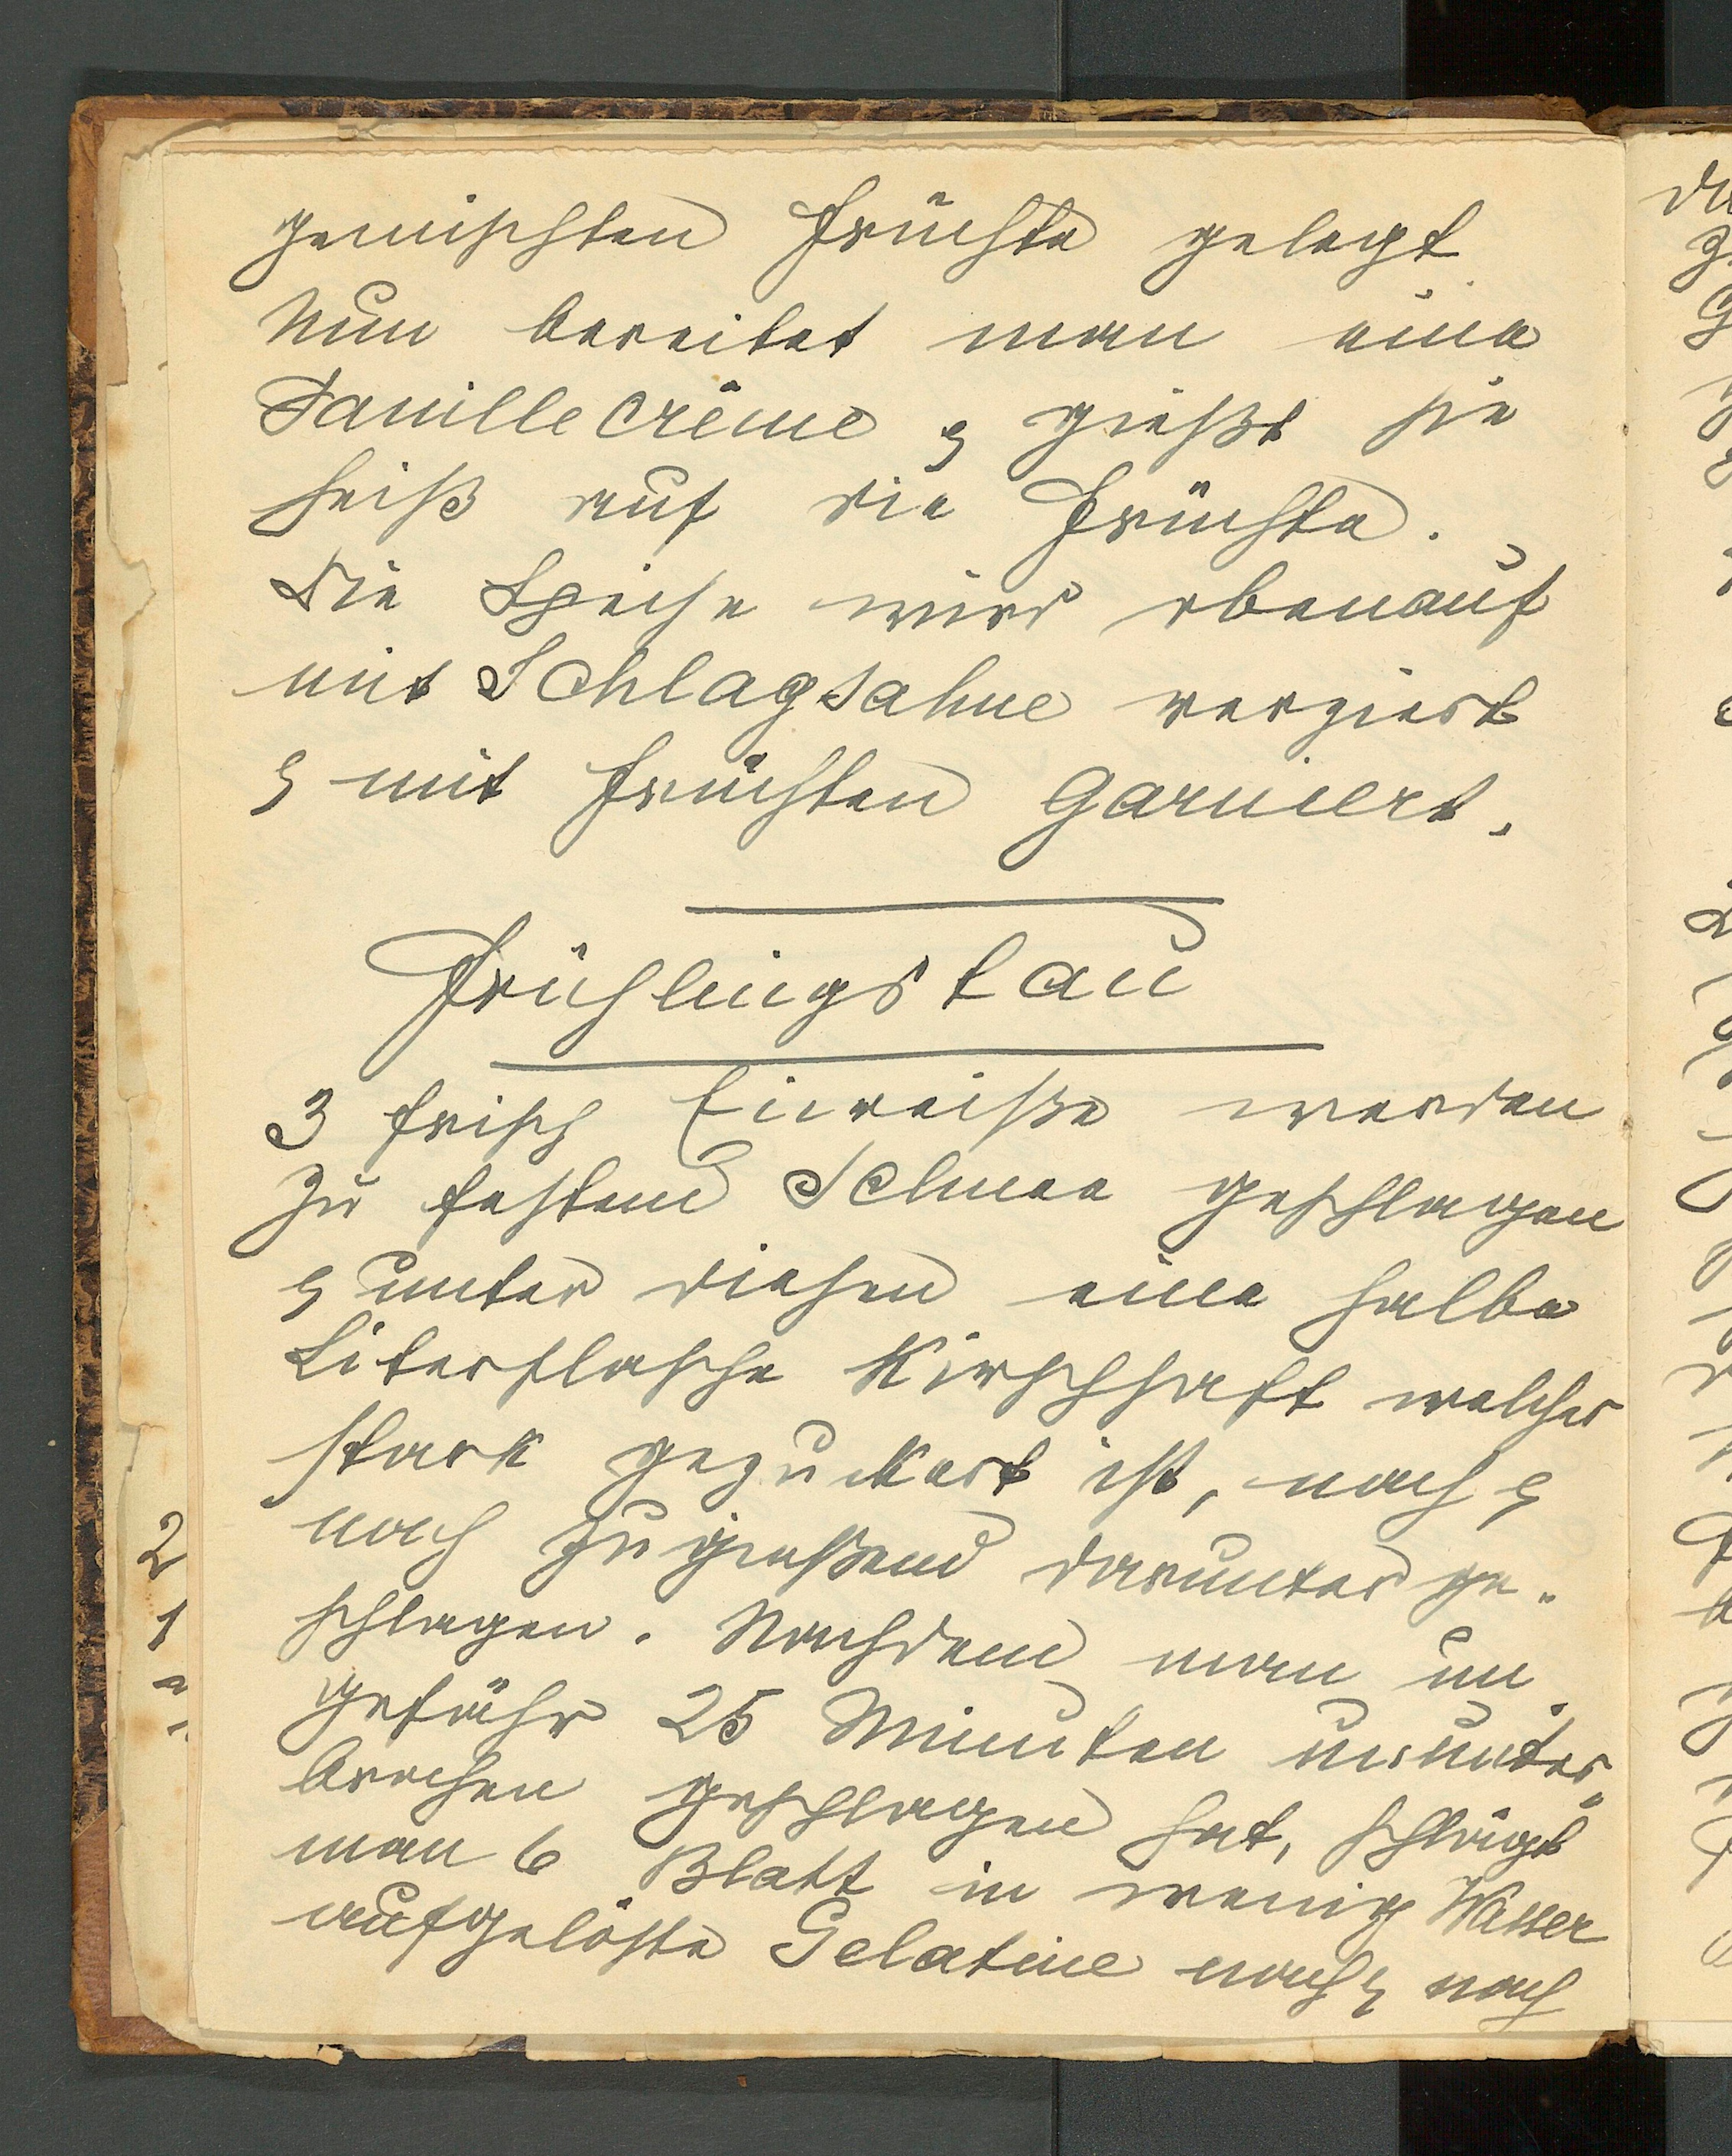 gemischten Früchte gelegt
Nun bereitet man eine
Vanillecrême u gießt sie
heiß auf die Früchte.
Die Speise wird obenauf
mit Schlagsahne verziert
u mit Früchten garniert.
Frühlingstau
3 frisch Eiweiße werden
zu festem Schnee geschlagen
u unter diesen eine halbe
Literflasche Kirschsaft welcher
stark gezuckert ist, nach u
nach zugießend darunter ge-
schlagen. Nachdem man un
gefähr 25 Minuten ununter„
brochen geschlagen hat, schlägt
man 6 Blatt in wenig Wasser
aufgelöste Gelatine nach u nach
2
1